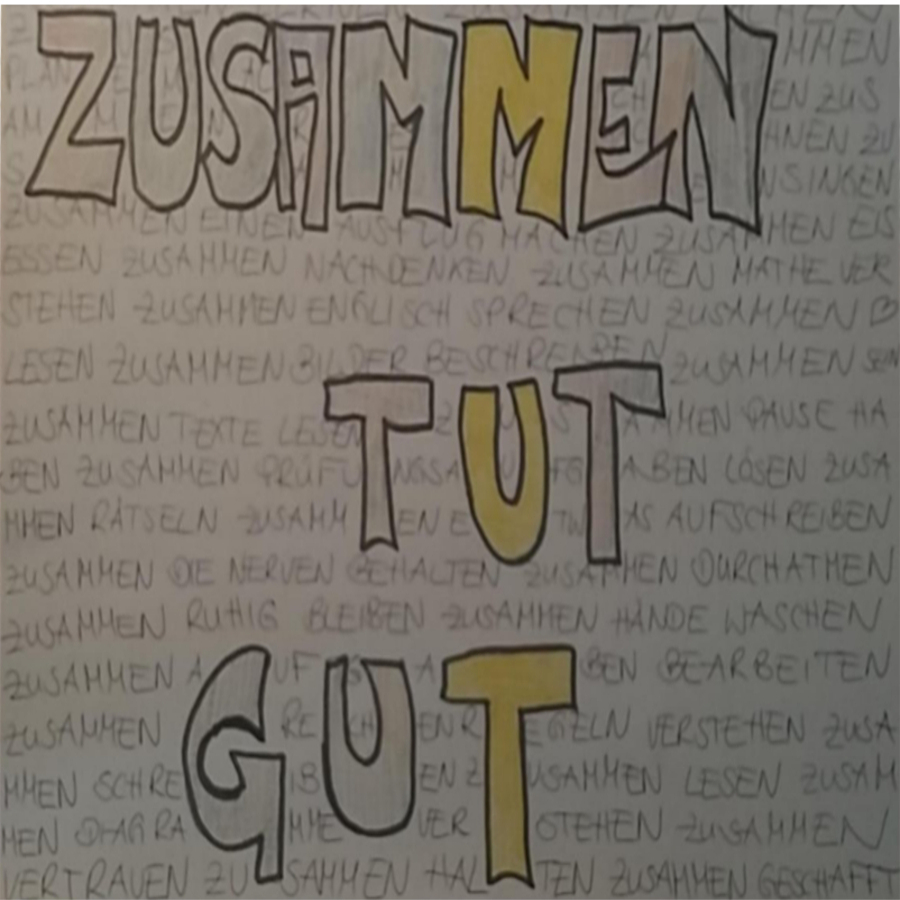 ZUSAMMEN
ZUSAMMEN EINEN AUSFLUG MACHEN ZUSAMMEN EIS
ESSEN ZUSAMMEN NACHDENKEN ZUSAMMEN MATHE VER
STEHEN ZUSAMMEN ENGLISCH SPRECHEN ZUSAMMEN ♡
LESEN ZUSAMMEN BILDER BESCHREIBEN ZUSAMMEN SEIN
TUT
ZUSAMMEN TEXTE LESEN ZUSAMMEN PAUSE HA
BEN ZUSAMMEN PRÜFUNGSAUFGABEN LÖSEN ZUSA
MMEN RÄTSELN ZUSAMMEN ETWAS AUFSCHREIBEN
ZUSAMMEN DIE NERVEN BEHALTEN ZUSAMMEN DURCHATMEN
ZUSAMMEN RUHIG BLEIBEN ZUSAMMEN HÄNDE WASCHEN
GUT
ZUSAMMEN AUFGABEN BEARBEITEN
ZUSAMMEN RECHENREGELN VERSTEHEN ZUSA
MMEN SCHREIBEN ZUSAMMEN LESEN ZUSAM
MEN DIAGRAMME VERSTEHEN ZUSAMMEN
VERTRAUEN ZUSAMMEN HALTEN ZUSAMMEN GESCHAFFT